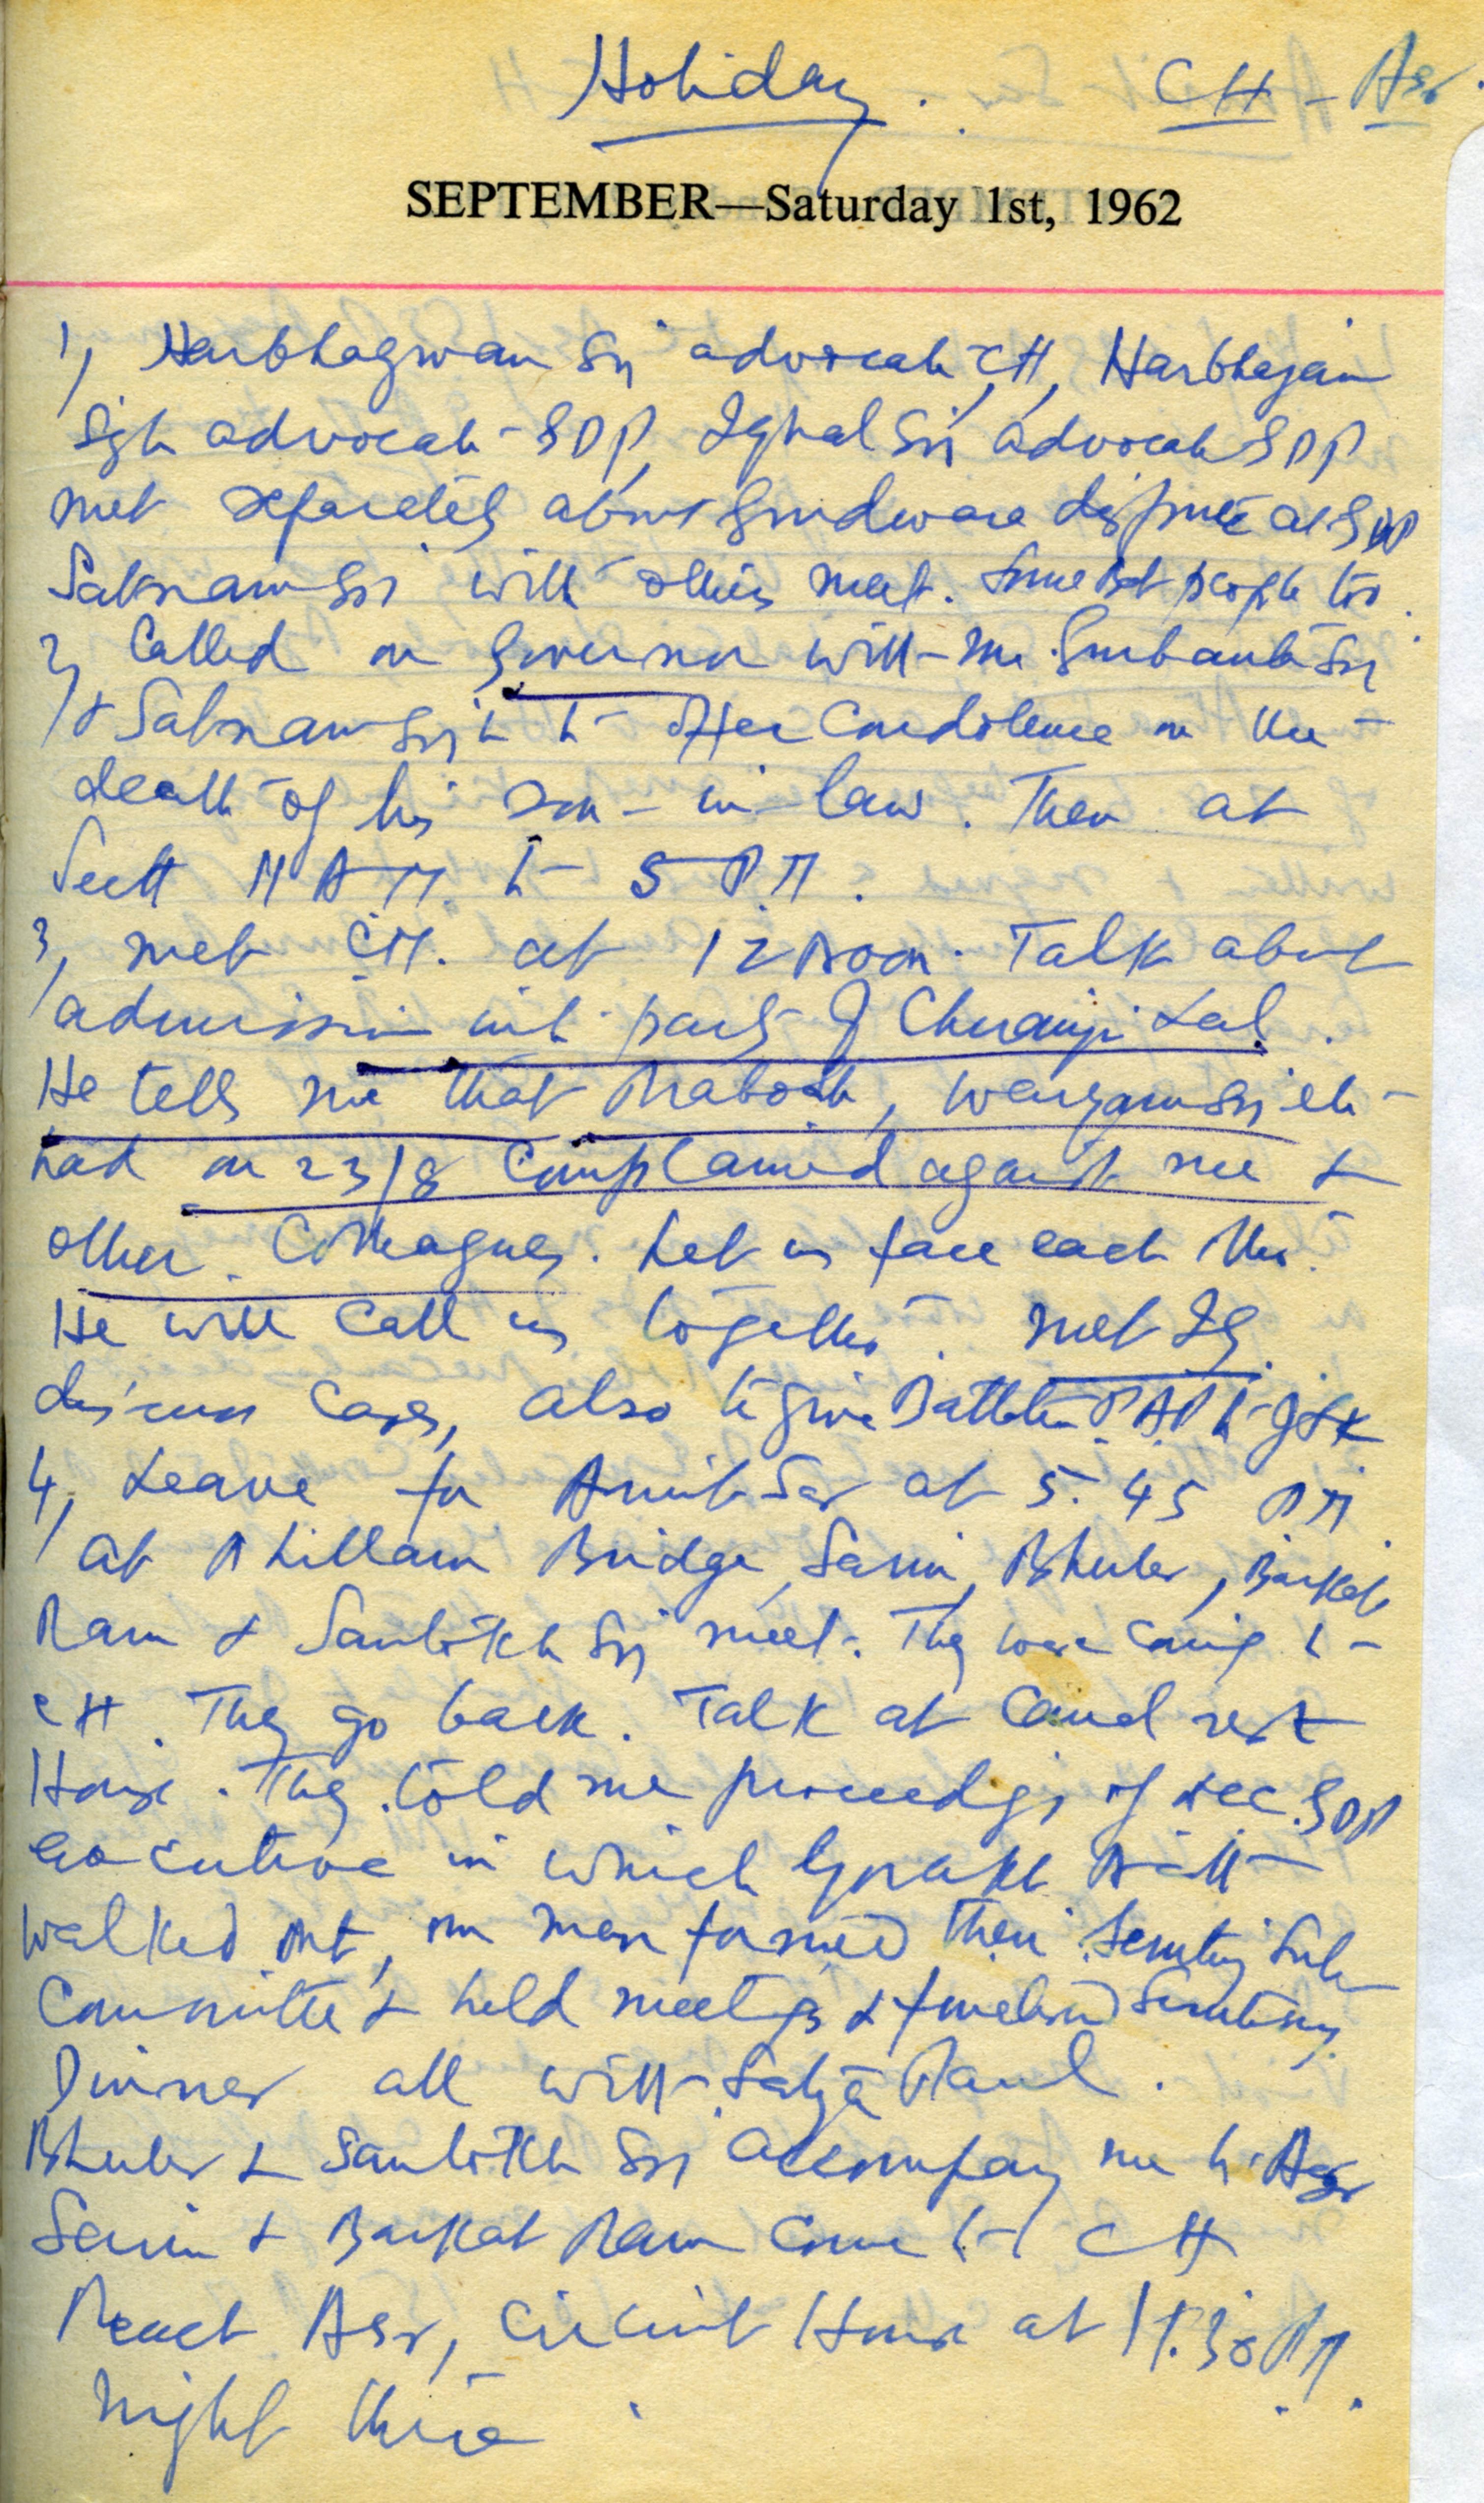 Holiday. CH - Asr.
SEPTEMBER—Saturday 1st, 1962
1, Harbhagwan Sn advocate, CH, Harbhajan
Sgh advocate - GDP, Iqbal Sn advocate GDP
met separately about Gurdwara dispute at GDP
Satnam Sn with others meet. Some Bet people too.
2, Called on Governor with Mr. Gurbanta Sn
& Satnam Sngh to offer Condolence on the
death of his son-in-law. Then at
Sectt 11 A.M. to 5 P.M.
3, met CM. at 12 Noon. Talk about
admission into party of Chiranji Lal.
He tells me that Prabodh, Waryam Sn etc
had on 23/8 Complained against me &
other Colleagues. Let us face each other.
He will call us together. met IG.
discuss cases, also to give Battalion P.A.P to J&K
4, Leave for Amritsar at 5.45 PM
at Phillaur Bridge, Sarin, Bhuler, Barkat
Ram & Santokh Sn meet. They were coming to
CH. They go back. Talk at Canal rest
House. They told me proceedings of DCC. GDP
executive in which Gorakh Nath
walked out, our men formed their Scrutiny Sub
Committee & held meetgs & finalised Scrutiny
Dinner all with Satya Paul.
Bhuler & Santokh Sn accompany me to Asr
Sarin & Barkat Ram come to CH
Reach Asr, Circuit House at 11.30 PM.
Night there.